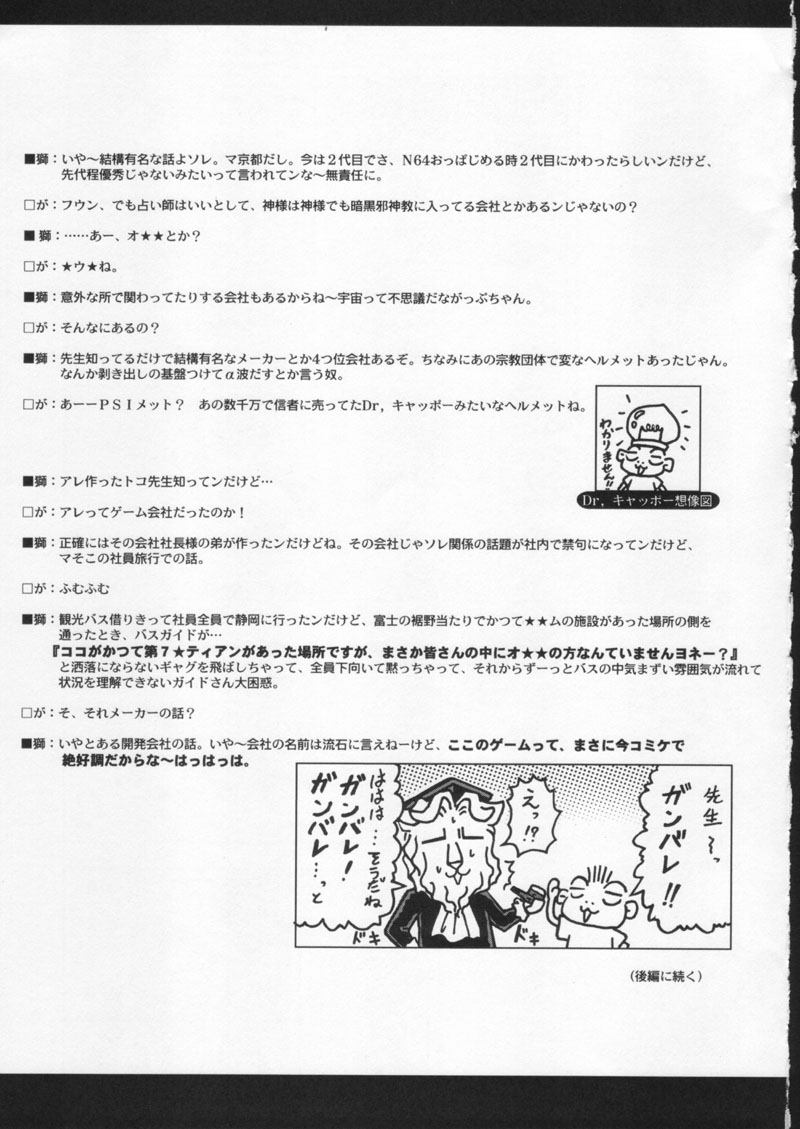 ■獅：いや～結構有名な話よソレ。マ京都だし。今は２代目でさ、N64おっぱじめる時２代目にかわったらしいンだけど、
先代程優秀じゃないみたいって言われてンな～無責任に。
□が：フウン、でも占い師はいいとして、神様は神様でも暗黒邪神教に入ってる会社とかあるンじゃないの？
■獅：……あー、オ★★とか？
□が：★ウ★ね。
■獅：意外な所で関わってたりする会社もあるからね～宇宙って不思議だながっぷちゃん。
□が：そんなにあるの？
■獅：先生知ってるだけで結構有名なメーカーとか4つ位会社あるぞ。ちなみにあの宗教団体で変なヘルメットあったじゃん。
なんか剥き出しの基盤つけてα波だすとか言う奴。
□が：あーーＰＳＩメット？　あの数千万で信者に売ってたDr，キャッポーみたいなヘルメットね。
わかりません!!
Dr，キャッポー想像図
■獅：アレ作ったトコ先生知ってンだけど…
□が：アレってゲーム会社だったのか！
■獅：正確にはその会社社長様の弟が作ったンだけどね。その会社じゃソレ関係の話題が社内で禁句になってンだけど、
マそこの社員旅行での話。
□が：ふむふむ
■獅：観光バス借りきって社員全員で静岡に行ったンだけど、富士の裾野当たりでかつて★★ムの施設があった場所の側を
通ったとき、バスガイドが…
『ココがかつて第７★ティアンがあった場所ですが、まさか皆さんの中にオ★★の方なんていませんヨネー？』
と洒落にならないギャグを飛ばしちゃって、全員下向いて黙っちゃって、それからずーっとバスの中気まずい雰囲気が流れて
状況を理解できないガイドさん大困惑。
□が：そ、それメーカーの話？
■獅：いやとある開発会社の話。いや～会社の名前は流石に言えねーけど、ここのゲームって、まさに今コミケで
絶好調だからな～はっはっは。
先生～っ
ガンバレ!!
えっ!?
ははは…そうだね
ガンバレ！
ガンバレ…っと
ドキ
ドキ
（後編に続く）